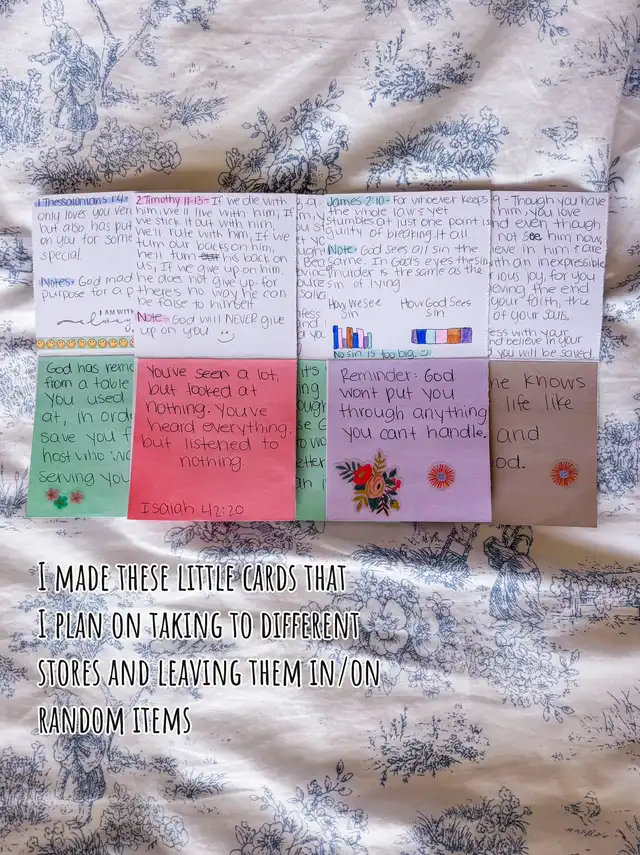 1 Thesolonians 1:4-
only loves you
but also has put
on you for some
special.
Notes- God mad
purpose for a p
I AM WITH
2 Timothy 11-13- If we die with
him, we'll live with him, If
we stick it out with him,
we'll rule with him, If we
turn our backs on him
he'll turn his back on
us, If we give up on him,
he does not give up- for
theres no way he can
be false to himself.
Note- God will NEVER give
up on you
James 2:10- For whoever keeps
the whole law yet
stumbles at just one point is
guilty of breaking it all.
Note- God sees all sin the
same. In God's eyes the sin
murder is the same as the
sin of lying.
How We see
sin
How God Sees
Sin
No sin is too big
9 - Though you have
him, you love
nd even though
not see him now,
ieve him
ith an inexpressible
rious joy, for you
ieving the end
your faith, the
of your souls.
ess with your
nd believe in your
you will be saved.
God has
from a table
You used
at, in ord
save you f
host who wa
serving you
You've seen a lot,
but looked at
nothing. You've
heard everything,
but listened to
nothing.
Isaiah 42:20
Reminder: God
wont put you
through anything
you cant handle.
he knows
life like
and
od.
I made these little cards that
I plan on taking to different
stores and leaving them in/on
random items